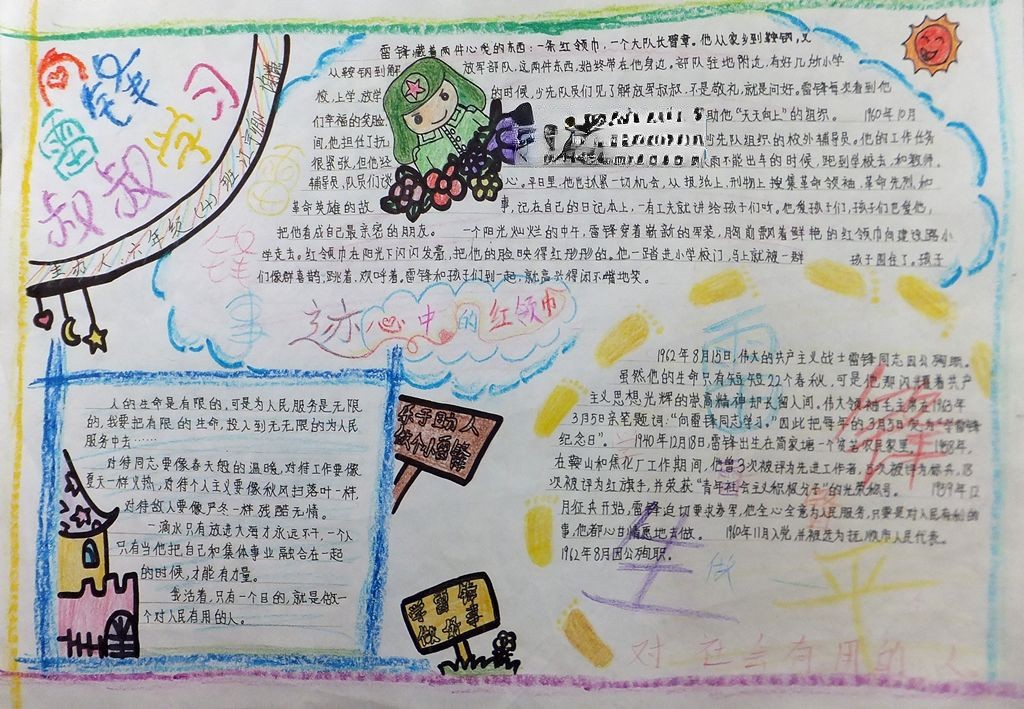 向雷锋
叔叔学习
主办人:六年级(4)班
雷锋藏着两件心爱的东西:一条红领巾,一个大队长臂章。他从家乡到鞍钢,又
从鞍钢到解放军部队,这两件东西,始终带在他身边。部队驻地附近,有好几所小学
校,上学、放学的时候,少先队员们见了解放军叔叔,不是敬礼,就是问好。雷锋每次看到他
们幸福的笑脸 助他“天天向上”的组织。 1960年10月
间,他担任了抚 少先队组织的校外辅导员。他的工作任务
很紧张,但他经 雨不能出车的时候,跑到学校去,和教师、
辅导员、队员们谈心。平日里,他也抓紧一切机会,从报纸上、刊物上搜集革命领袖、革命先烈和
革命英雄的故事,记在自己的日记本上,一有工夫就讲给孩子们听。他爱孩子们,孩子们也爱他,
把他看成自己最亲密的朋友。 一个阳光灿烂的中午,雷锋穿着崭新的军装,胸前飘着鲜艳的红领巾向建设路小
学走去。红领巾在阳光下闪闪发亮,把他的脸映得红彤彤的。他一踏进小学校门,马上就被一群孩子围住了。孩子
们像群喜鹊,跳着、欢呼着,雷锋和孩子们到一起,就高兴得闭不拢地笑。
锋
事迹心中的红领巾
人的生命是有限的,可是为人民服务是无限
的,我要把有限的生命,投入到无无限的为人民
服务中去……
对待同志要像春天般的温暖,对待工作要像
夏天一样火热,对待个人主义要像秋风扫落叶一样,
对待敌人要像严冬一样残酷无情。
一滴水只有放进大海才永远不干,一个人
只有当他把自己和集体事业融合在一起
的时候,才能有力量。
我活着,只有一个目的,就是做一
个对人民有用的人。
乐于助人
做个小雷锋
学雷锋
做好事
1962年8月15日,伟大的共产主义战士雷锋同志因公殉职。
虽然他的生命只有短短22个春秋,可是他那闪耀着共产
主义思想光辉的崇高精神却长留人间。伟大领袖毛主席在1963年
3月5日亲笔题词:“向雷锋同志学习。”因此把每年的3月5日定为“学雷锋
纪念日”。 1940年12月18日,雷锋出生在简家塘一个贫苦农民家里。 1958年,
在鞍山和焦化厂工作期间,他曾3次被评为先进工作者,5次被评为标兵,18
次被评为红旗手,并荣获“青年社会主义积极分子”的光荣称号。 1959年12
月征兵开始,雷锋迫切要求参军,他全心全意为人民服务,只要是对人民有利的
事,他都心甘情愿地去做。 1960年11月入党,并被选为抚顺市人民代表。
1962年8月因公殉职。
雷锋
生平
做
对社会有用的人